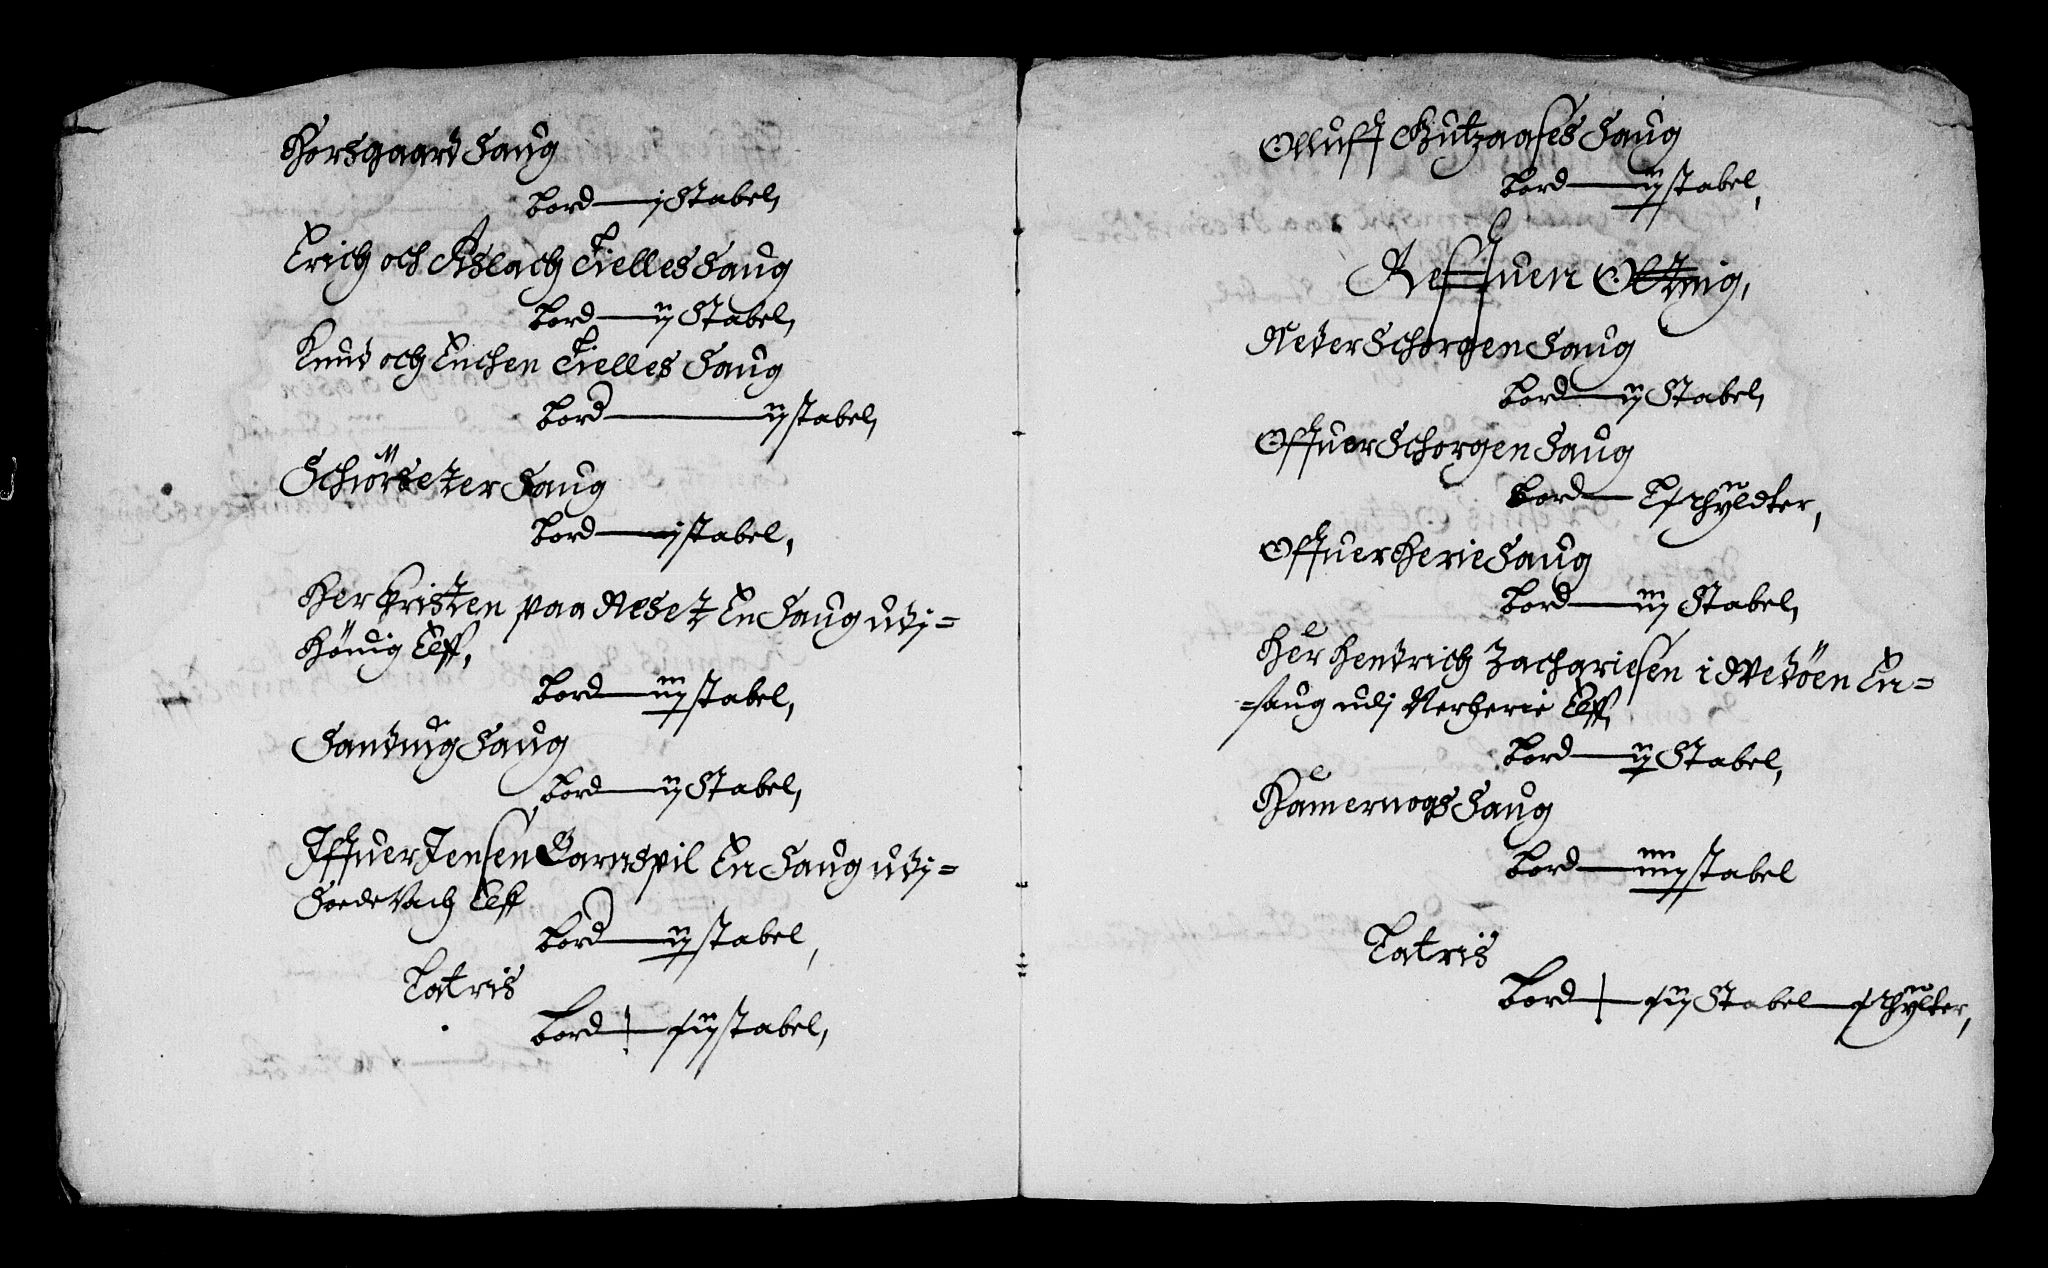 Korsgaard Saug
Bord — j Stabel,
Erich och Aslach Fielles Saug
Bord — ij Stabel,
Knud och Enchen Fielles Saug
Bord — ij stabel,
Schiörseter Saug
Bord — j stabel,
Her Christen paa Neset En Saug udj=
Hönig Elff,
Bord — iij stabel,
Sandnig Saug
Bord — ij Stabel,
Iffuer Jensen Garnspil En Saug udj=
Soedevach Elff
Bord — ij stabel,
Latris
Bord — xvij stabel,
Olluff Gutzaases Saug
Bord — ij stabel,
Reffsuen Otting,
Neder Schorgen Saug
Bord — ij Stabel,
Offuer Schorgen Saug
Bord — L schyldter,
Offuer Herie Saug
Bord — iij Stabel,
Her Hendrich Zachariesen i Wedöen En=
=saug udj Nerherie Elff,
Bord — ij Stabel,
Hamernogs Saug
Bord — iiij stabel
Latris
Bord — Stabel — schylter,